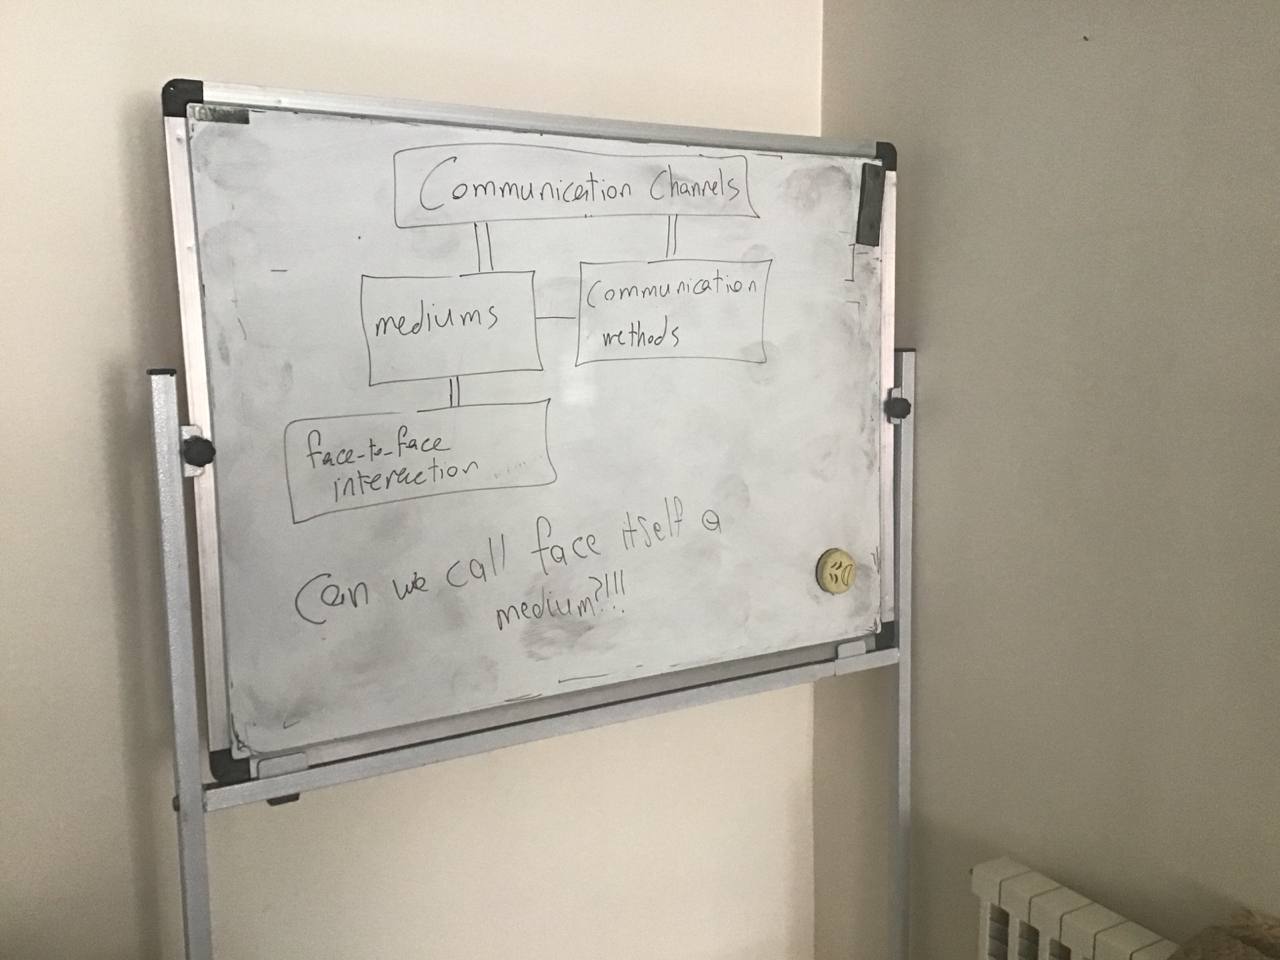 Communication Channels
mediums
Communication
methods
face-to-face
interaction
Can we call face itself a
medium?!!!